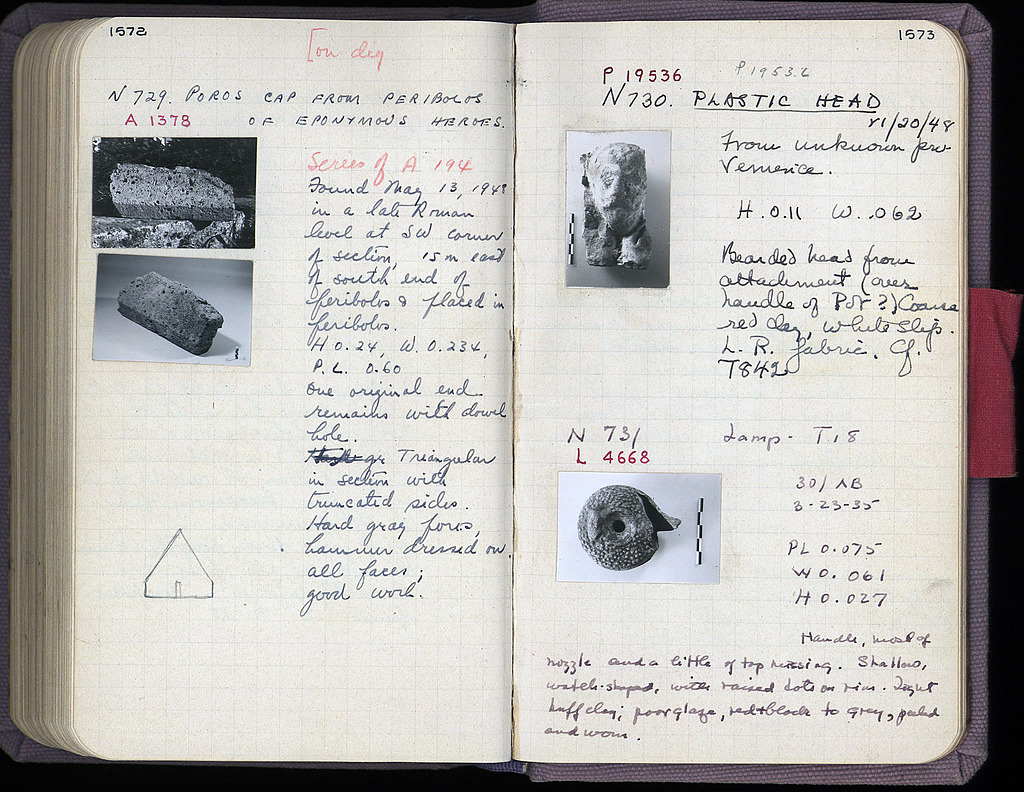 1572
[on dig
N 729. POROS CAP FROM PERIBOLOS
A 1378 OF EPONYMOUS HEROES.
Series of A 194
Found May 13, 1948
in a late Roman
level at SW corner
of section, 15 m east
of south end of
peribolos & placed in
peribolos.
H 0.24, W. 0.234,
P. L. 0.60
One original end
remains with dowel
hole.
Triangular
in section with
truncated sides.
Hard gray poros,
hammer dressed on
all faces;
good work.
1573
P 19536 P 19532
N 730. PLASTIC HEAD
VI/20/48
From unknown pro-
venience.
H. 0.11 W. .062
Bearded head from
attachment (over
handle of Pot?) Coarse
red clay, white slip.
L. R. fabric. Cf.
T 842
N 731 Lamp - T. 18
L 4668
30/ΛB
3-23-35
PL 0.075
W 0.061
H 0.027
Handle, most of
nozzle and a little of top missing. Shallow,
watch-shaped, with raised dots on rim. Light
buff clay; poor glaze, red + black to grey, peeled
and worn.